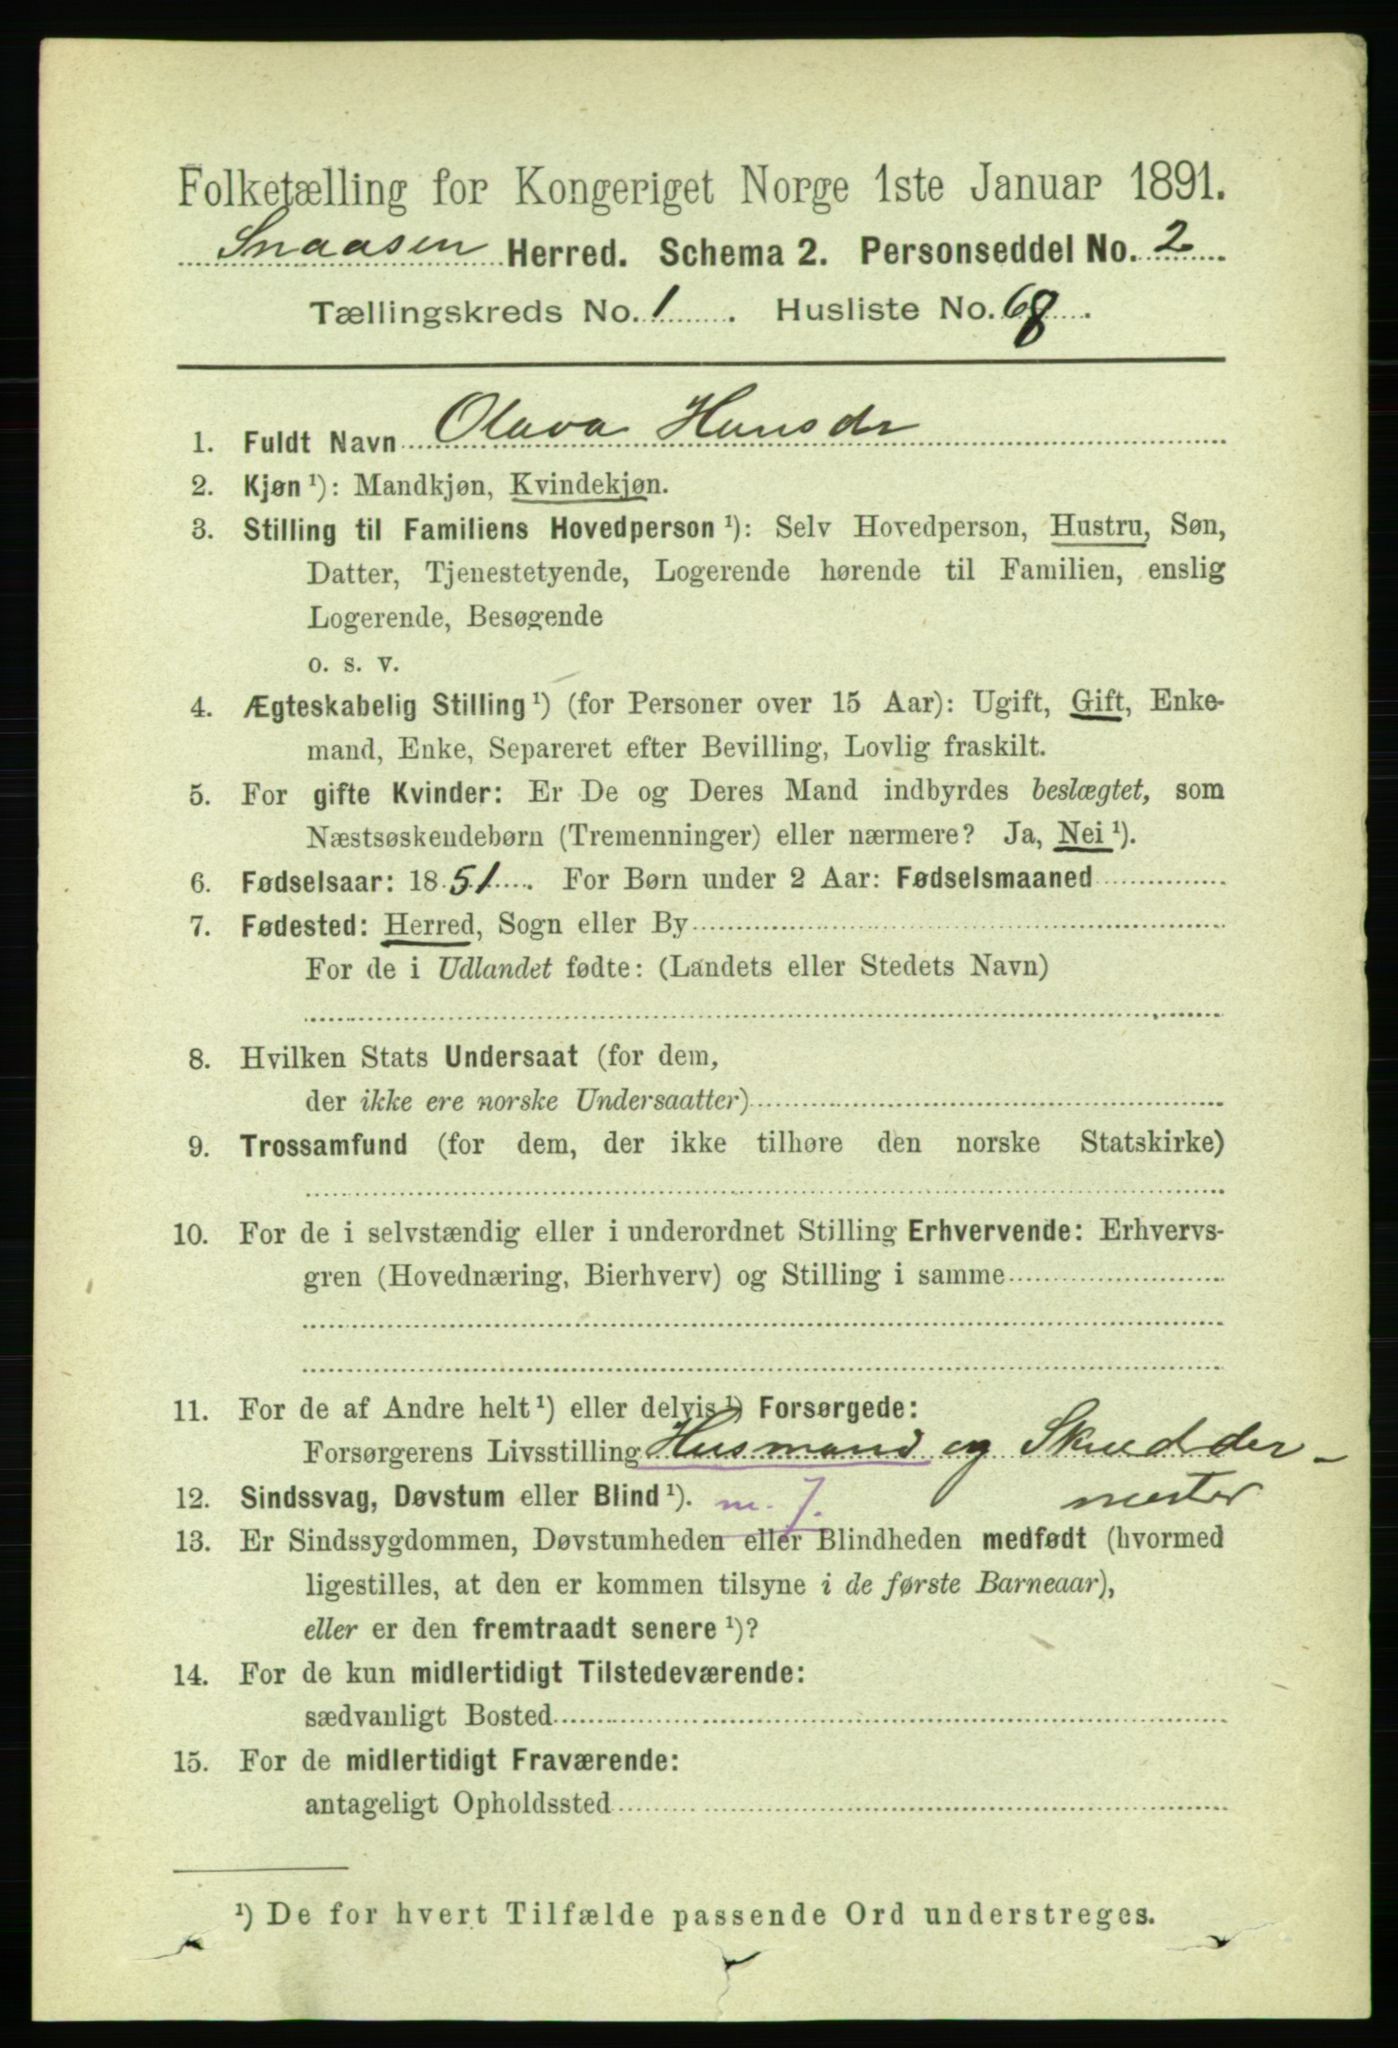 Folketælling for Kongeriget Norge 1ste Januar 1891.
Snaasen Herred. Schema 2. Personseddel No. 2
Tællingskreds No. 1. Husliste No. 68.
1. Fuldt Navn Olava Hansdr
2. Kjøn ¹): Mandkjøn, Kvindekjøn.
3. Stilling til Familiens Hovedperson ¹): Selv Hovedperson, Hustru, Søn,
Datter, Tjenestetyende, Logerende hørende til Familien, enslig
Logerende, Besøgende
o. s. v.
4. Ægteskabelig Stilling ¹) (for Personer over 15 Aar): Ugift, Gift, Enke-
mand, Enke, Separeret efter Bevilling, Lovlig fraskilt.
5. For gifte Kvinder: Er De og Deres Mand indbyrdes beslægtet, som
Næstsøskendebørn (Tremenninger) eller nærmere? Ja, Nei ¹).
6. Fødselsaar: 1851. For Børn under 2 Aar: Fødselsmaaned
7. Fødested: Herred, Sogn eller By
For de i Udlandet fødte: (Landets eller Stedets Navn)
8. Hvilken Stats Undersaat (for dem,
der ikke ere norske Undersaatter)
9. Trossamfund (for dem, der ikke tilhøre den norske Statskirke)
10. For de i selvstændig eller i underordnet Stilling Erhvervende: Erhvervs-
gren (Hovednæring, Bierhverv) og Stilling i samme
11. For de af Andre helt ¹) eller delvis ¹) Forsørgede:
Forsørgerens Livsstilling Husmand og Skrædder-
12. Sindssvag, Døvstum eller Blind ¹). m. J. mester
13. Er Sindssygdommen, Døvstumheden eller Blindheden medfødt (hvormed
ligestilles, at den er kommen tilsyne i de første Barneaar),
eller er den fremtraadt senere ¹)?
14. For de kun midlertidigt Tilstedeværende:
sædvanligt Bosted
15. For de midlertidigt Fraværende:
antageligt Opholdssted
¹) De for hvert Tilfælde passende Ord understreges.